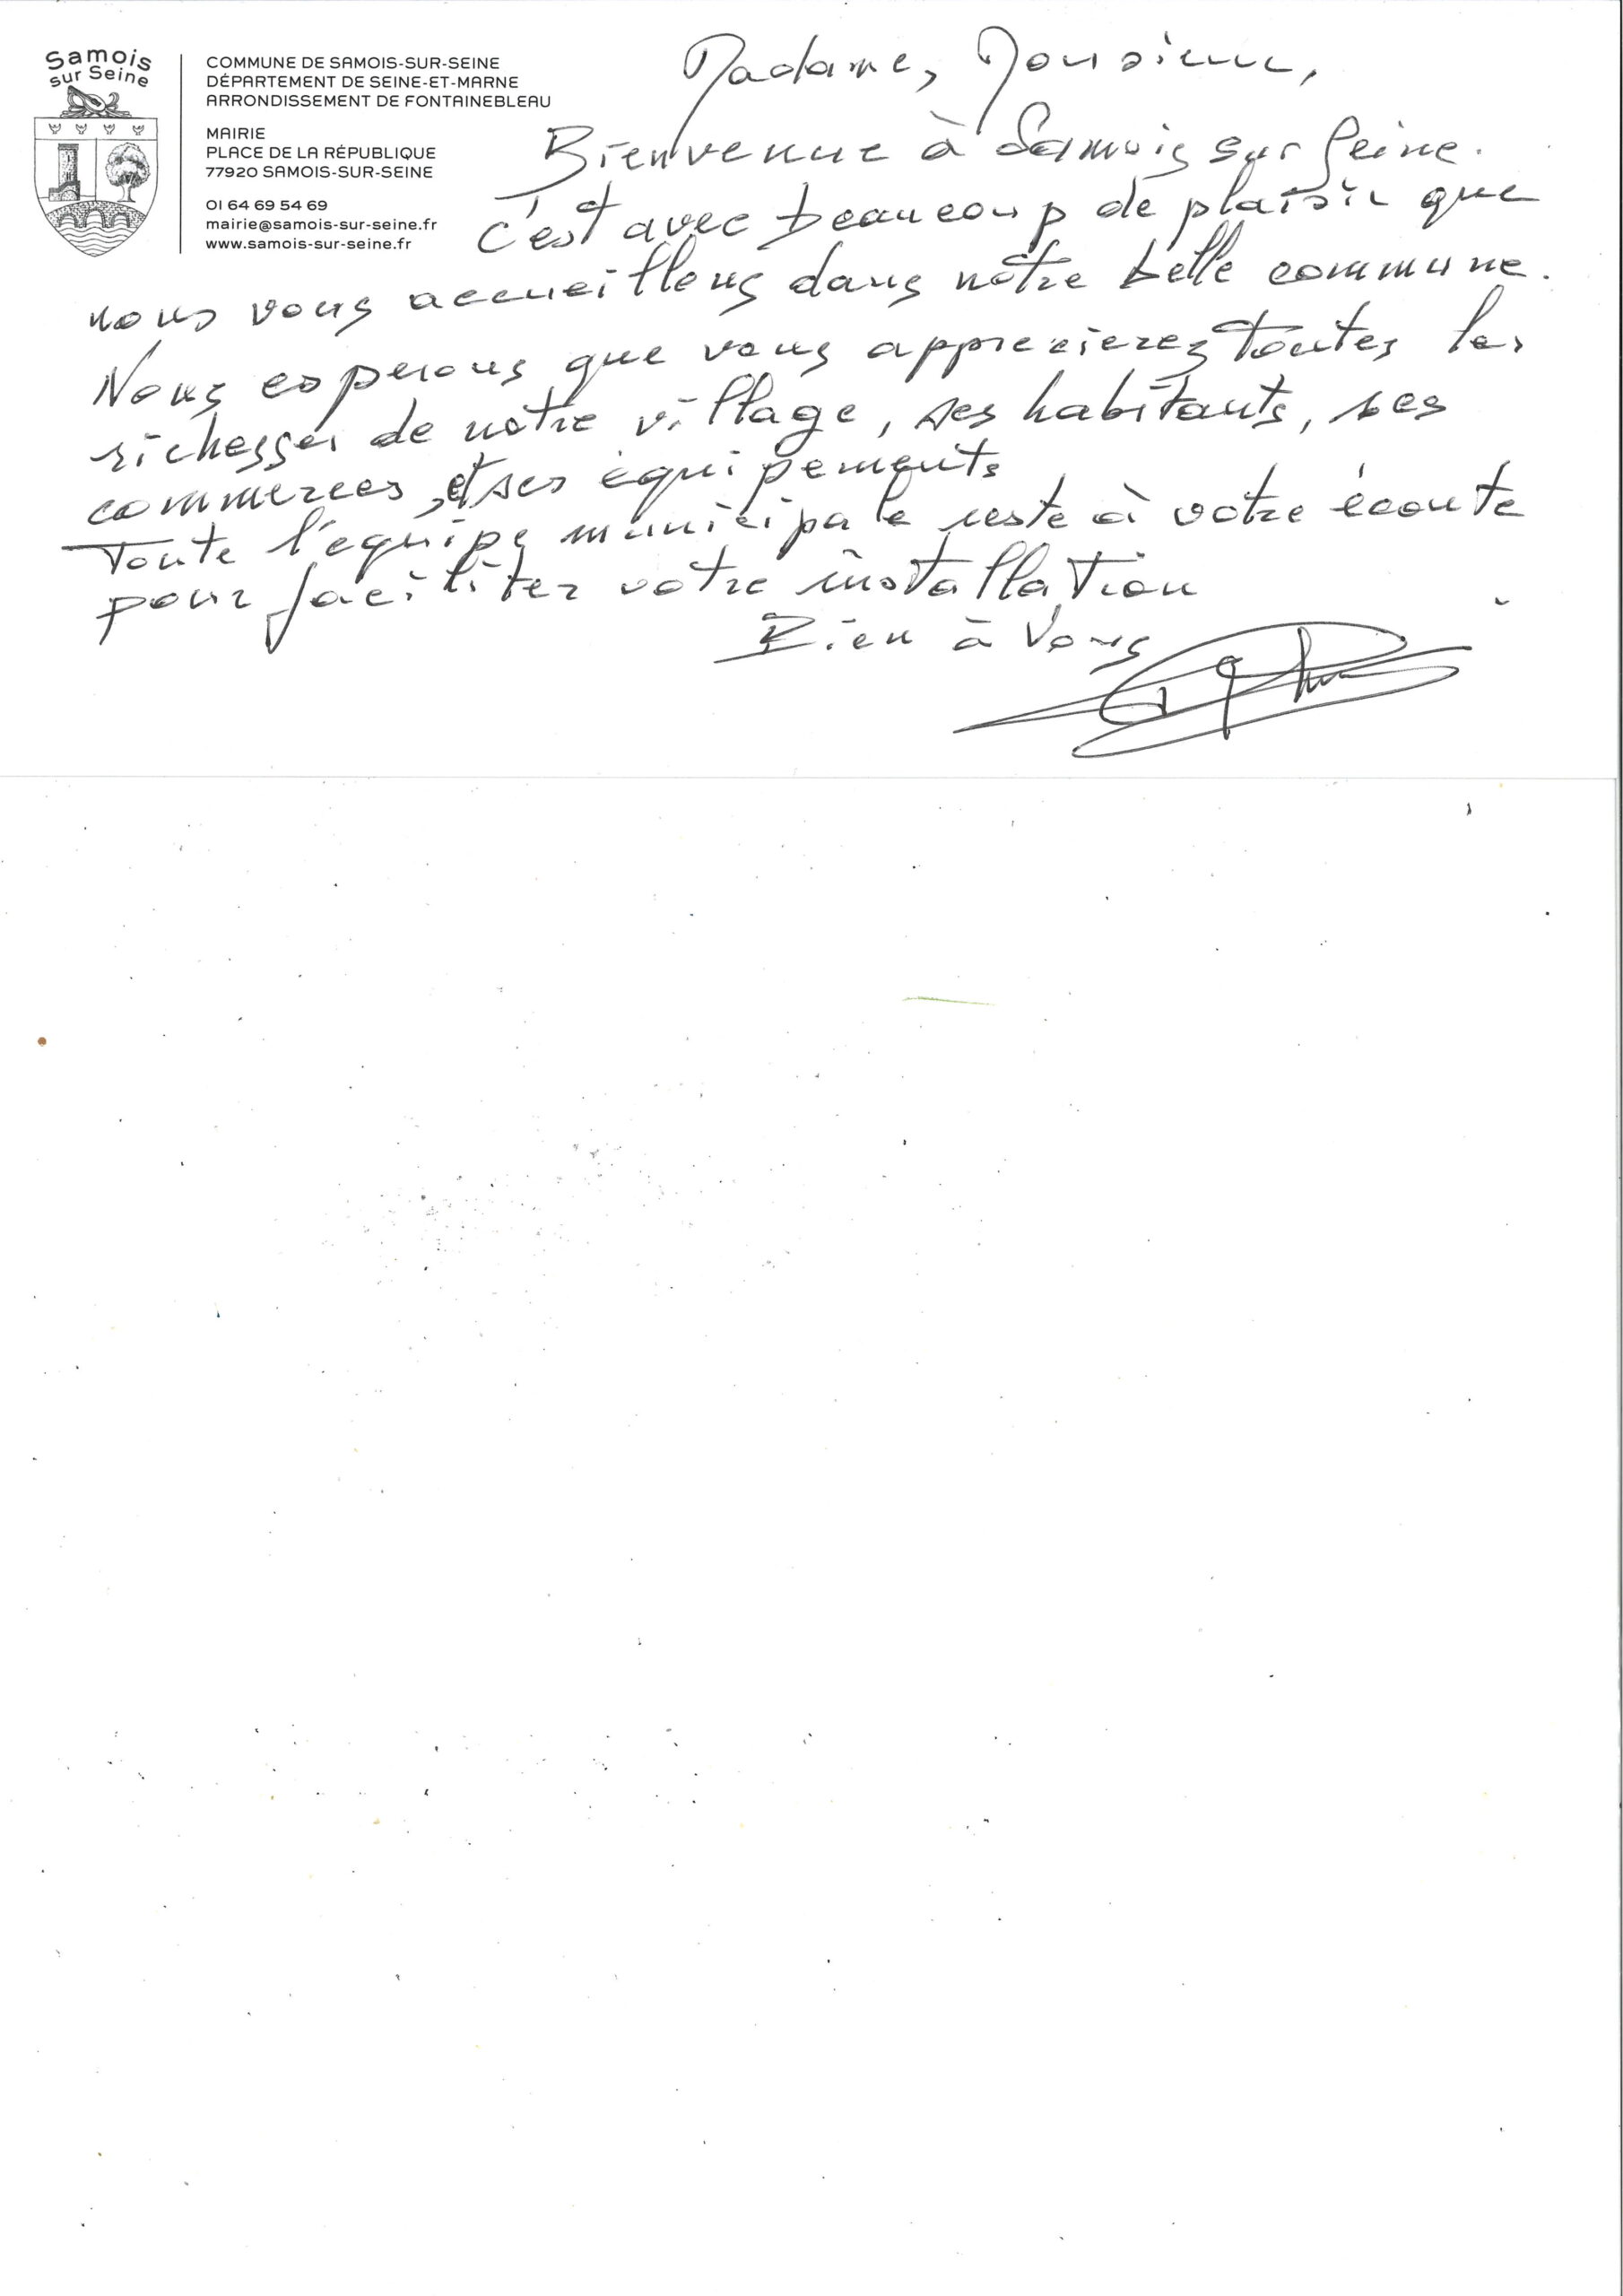 Samois
sur Seine
COMMUNE DE SAMOIS-SUR-SEINE
DÉPARTEMENT DE SEINE-ET-MARNE
ARRONDISSEMENT DE FONTAINEBLEAU
MAIRIE
PLACE DE LA RÉPUBLIQUE
77920 SAMOIS-SUR-SEINE
01 64 69 54 69
mairie@samois-sur-seine.fr
www.samois-sur-seine.fr
Madame, Monsieur,
Bienvenue à Samois sur Seine.
C'est avec beaucoup de plaisir que
nous vous accueillons dans notre belle commune.
Nous esperons que vous apprecierez toutes les
richesses de notre village, ses habitants, ses
commerces, et ses équipements
Toute l'équipe municipale reste à votre écoute
pour faciliter votre installation
Bien à Vous